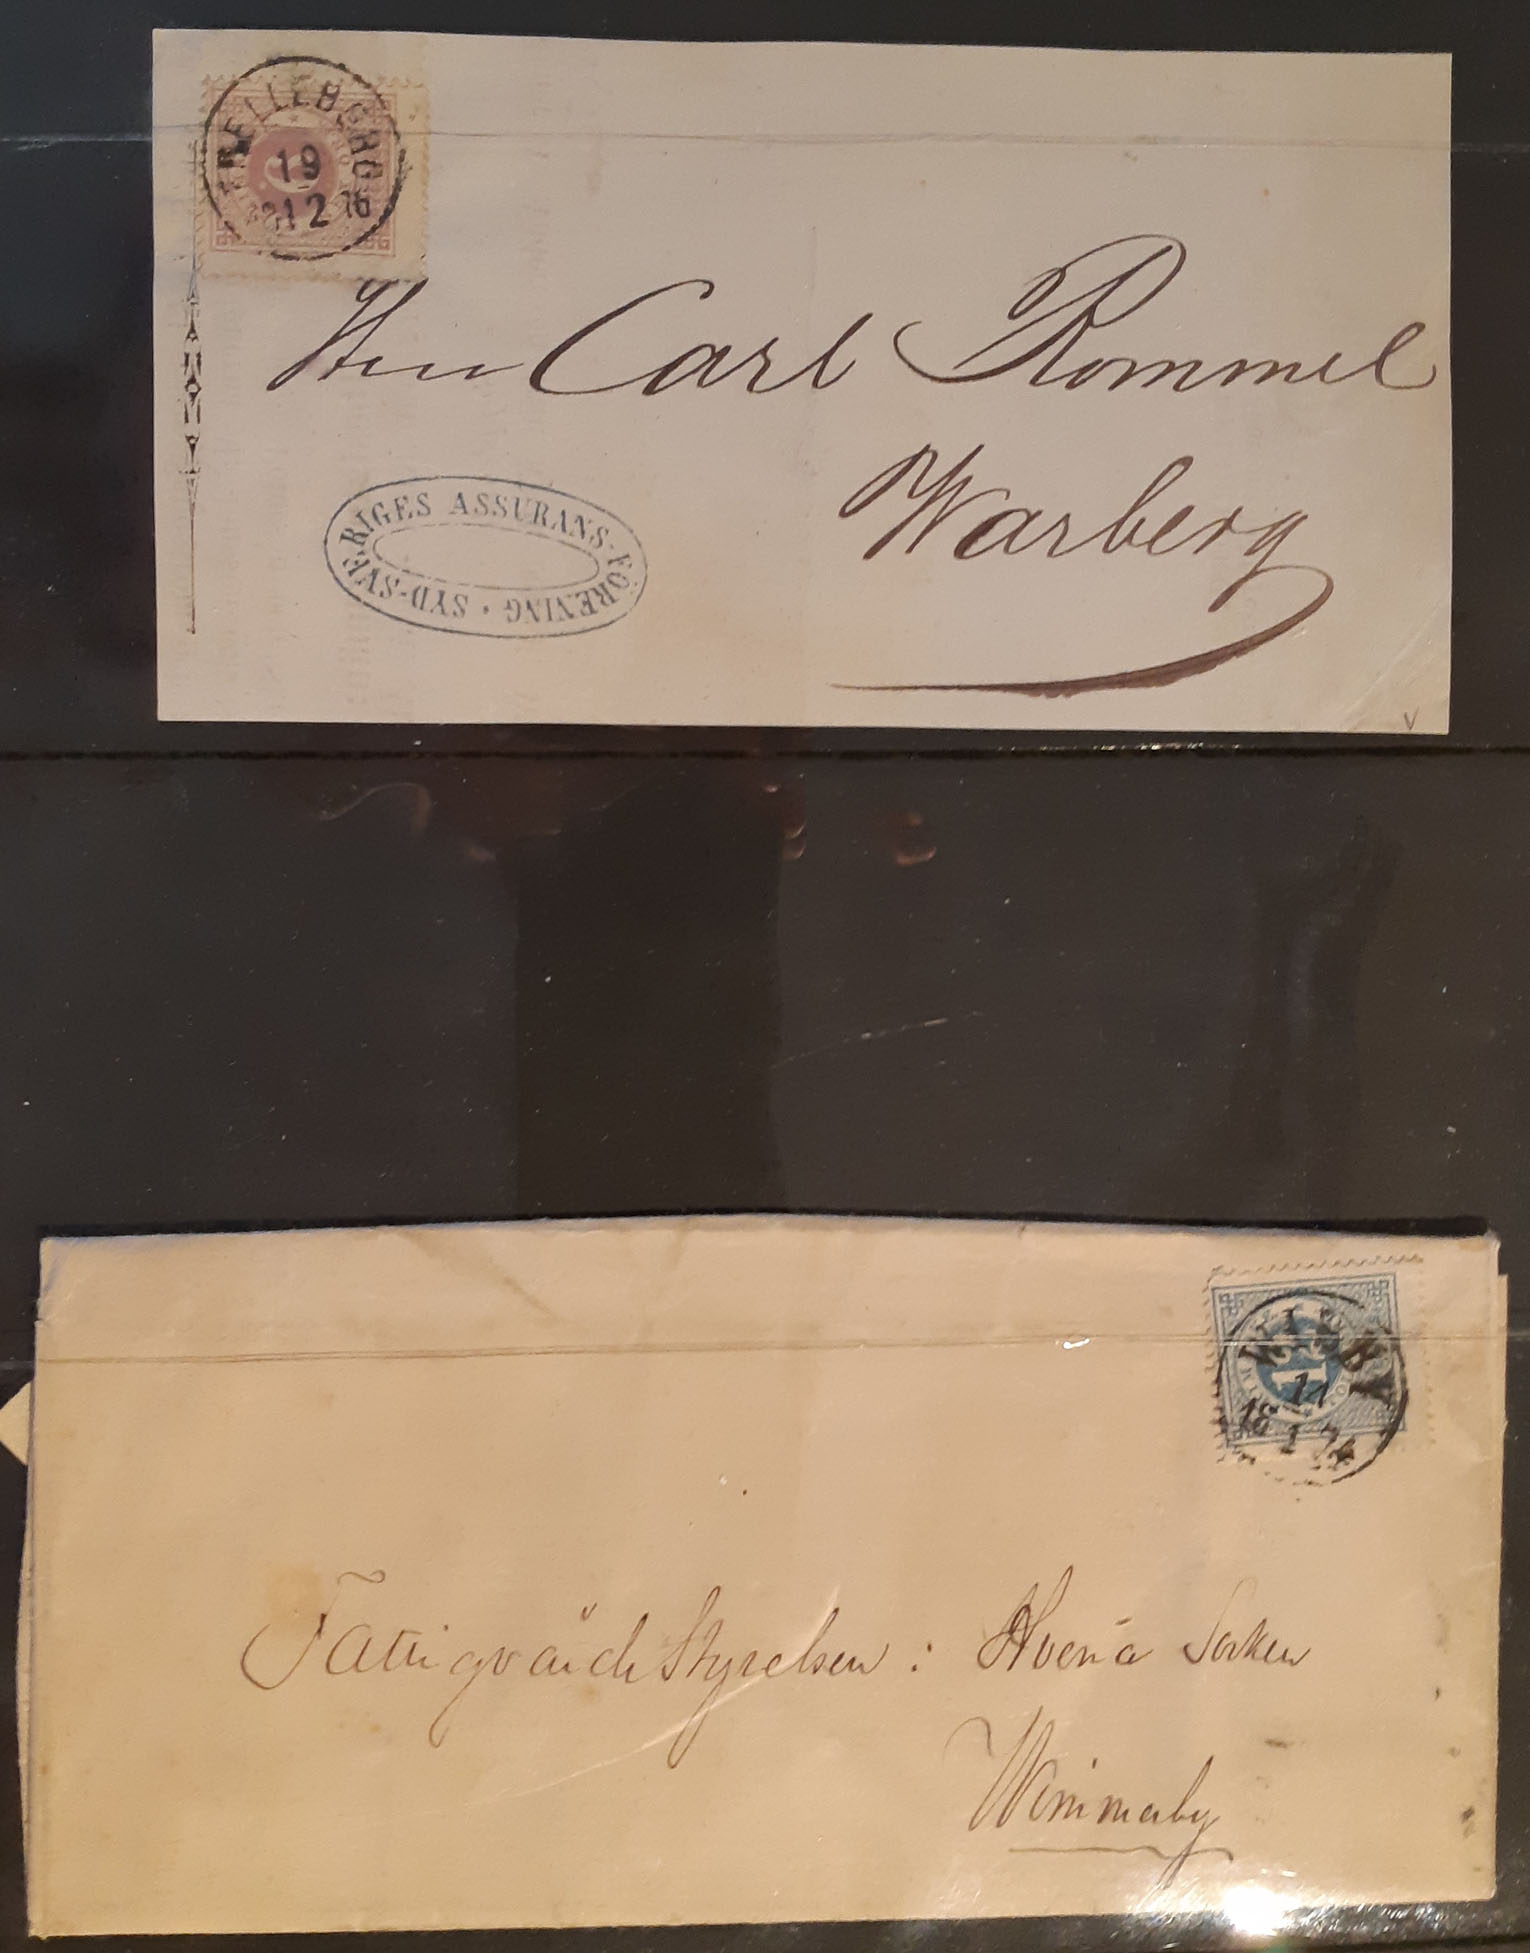 TRELLEBORG
19
12 76
6
Herr Carl Rommel
Warberg
SYD-SVERIGES ASSURANS-FÖRENING
12
11
1
Fattigvårds Styrelsen :
Wimmerby